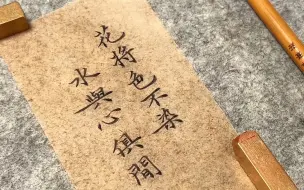 花将色不染
水與心俱閒